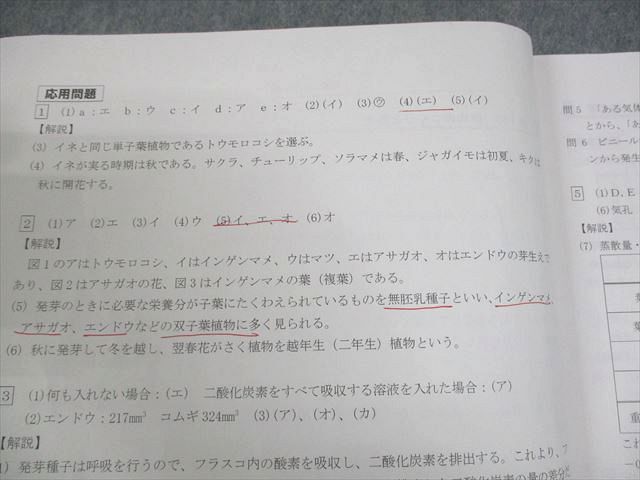 応用問題
1 (1) a:エ b:ウ c:イ d:ア e:オ (2)(イ) (3)㋒ (4)(エ) (5)(イ)
【解説】
(3) イネと同じ単子葉植物であるトウモロコシを選ぶ。
(4) イネが実る時期は秋である。サクラ、チューリップ、ソラマメは春、ジャガイモは初夏、キクは
秋に開花する。
2 (1)ア (2)エ (3)イ (4)ウ (5)イ、エ、オ (6)オ
【解説】
図1のアはトウモロコシ、イはインゲンマメ、ウはマツ、エはアサガオ、オはエンドウの芽生えで
あり、図2はアサガオの花、図3はインゲンマメの葉（複葉）である。
(5) 発芽のときに必要な栄養分が子葉にたくわえられているものを無胚乳種子といい、インゲンマメ、
アサガオ、エンドウなどの双子葉植物に多く見られる。
(6) 秋に発芽して冬を越し、翌春花がさく植物を越年生（二年生）植物という。
3 (1)何も入れない場合：(エ) 二酸化炭素をすべて吸収する溶液を入れた場合：(ア)
(2)エンドウ：217mm³ コムギ324mm³ (3)(ア)、(オ)、(カ)
【解説】
1) 発芽種子は呼吸を行うので、フラスコ内の酸素を吸収し、二酸化炭素を排出する。これより、
二酸化炭素の量の差分
問5 「ある気体
とから、「あ
問6 ビニール
ンから発生
5 (1)D、E
(6)気孔
【解説】
(7) 蒸散量・
葉
重
これ